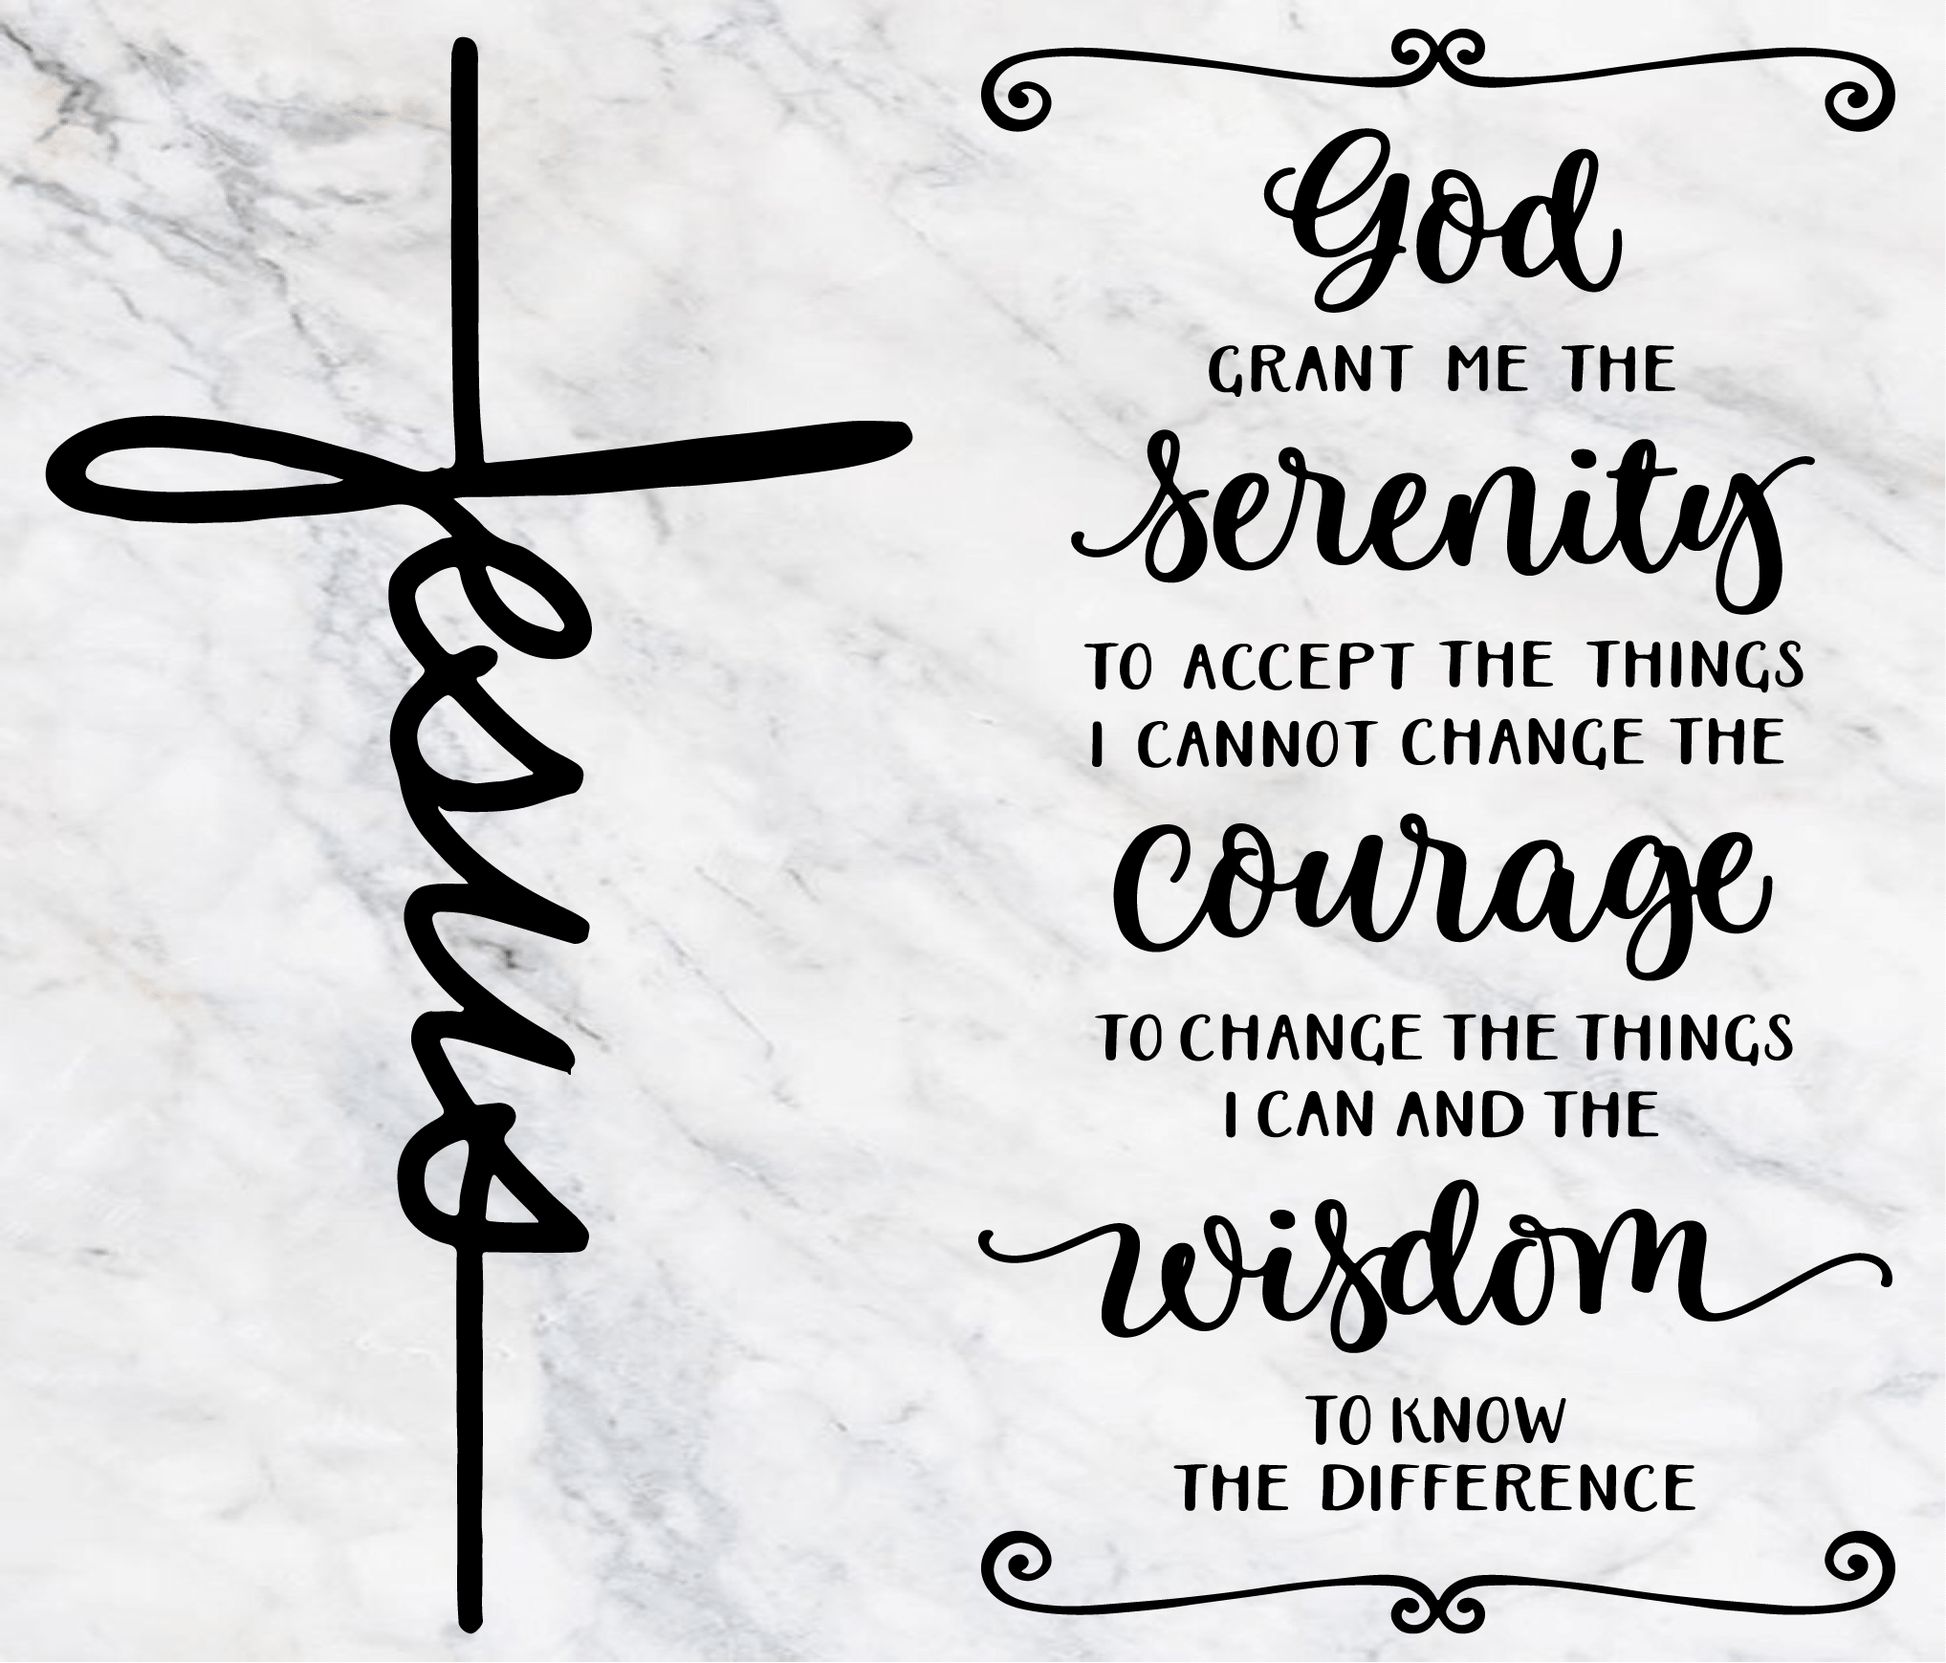 Jesus
God
GRANT ME THE
serenity
TO ACCEPT THE THINGS
I CANNOT CHANGE THE
courage
TO CHANGE THE THINGS
I CAN AND THE
wisdom
TO KNOW
THE DIFFERENCE